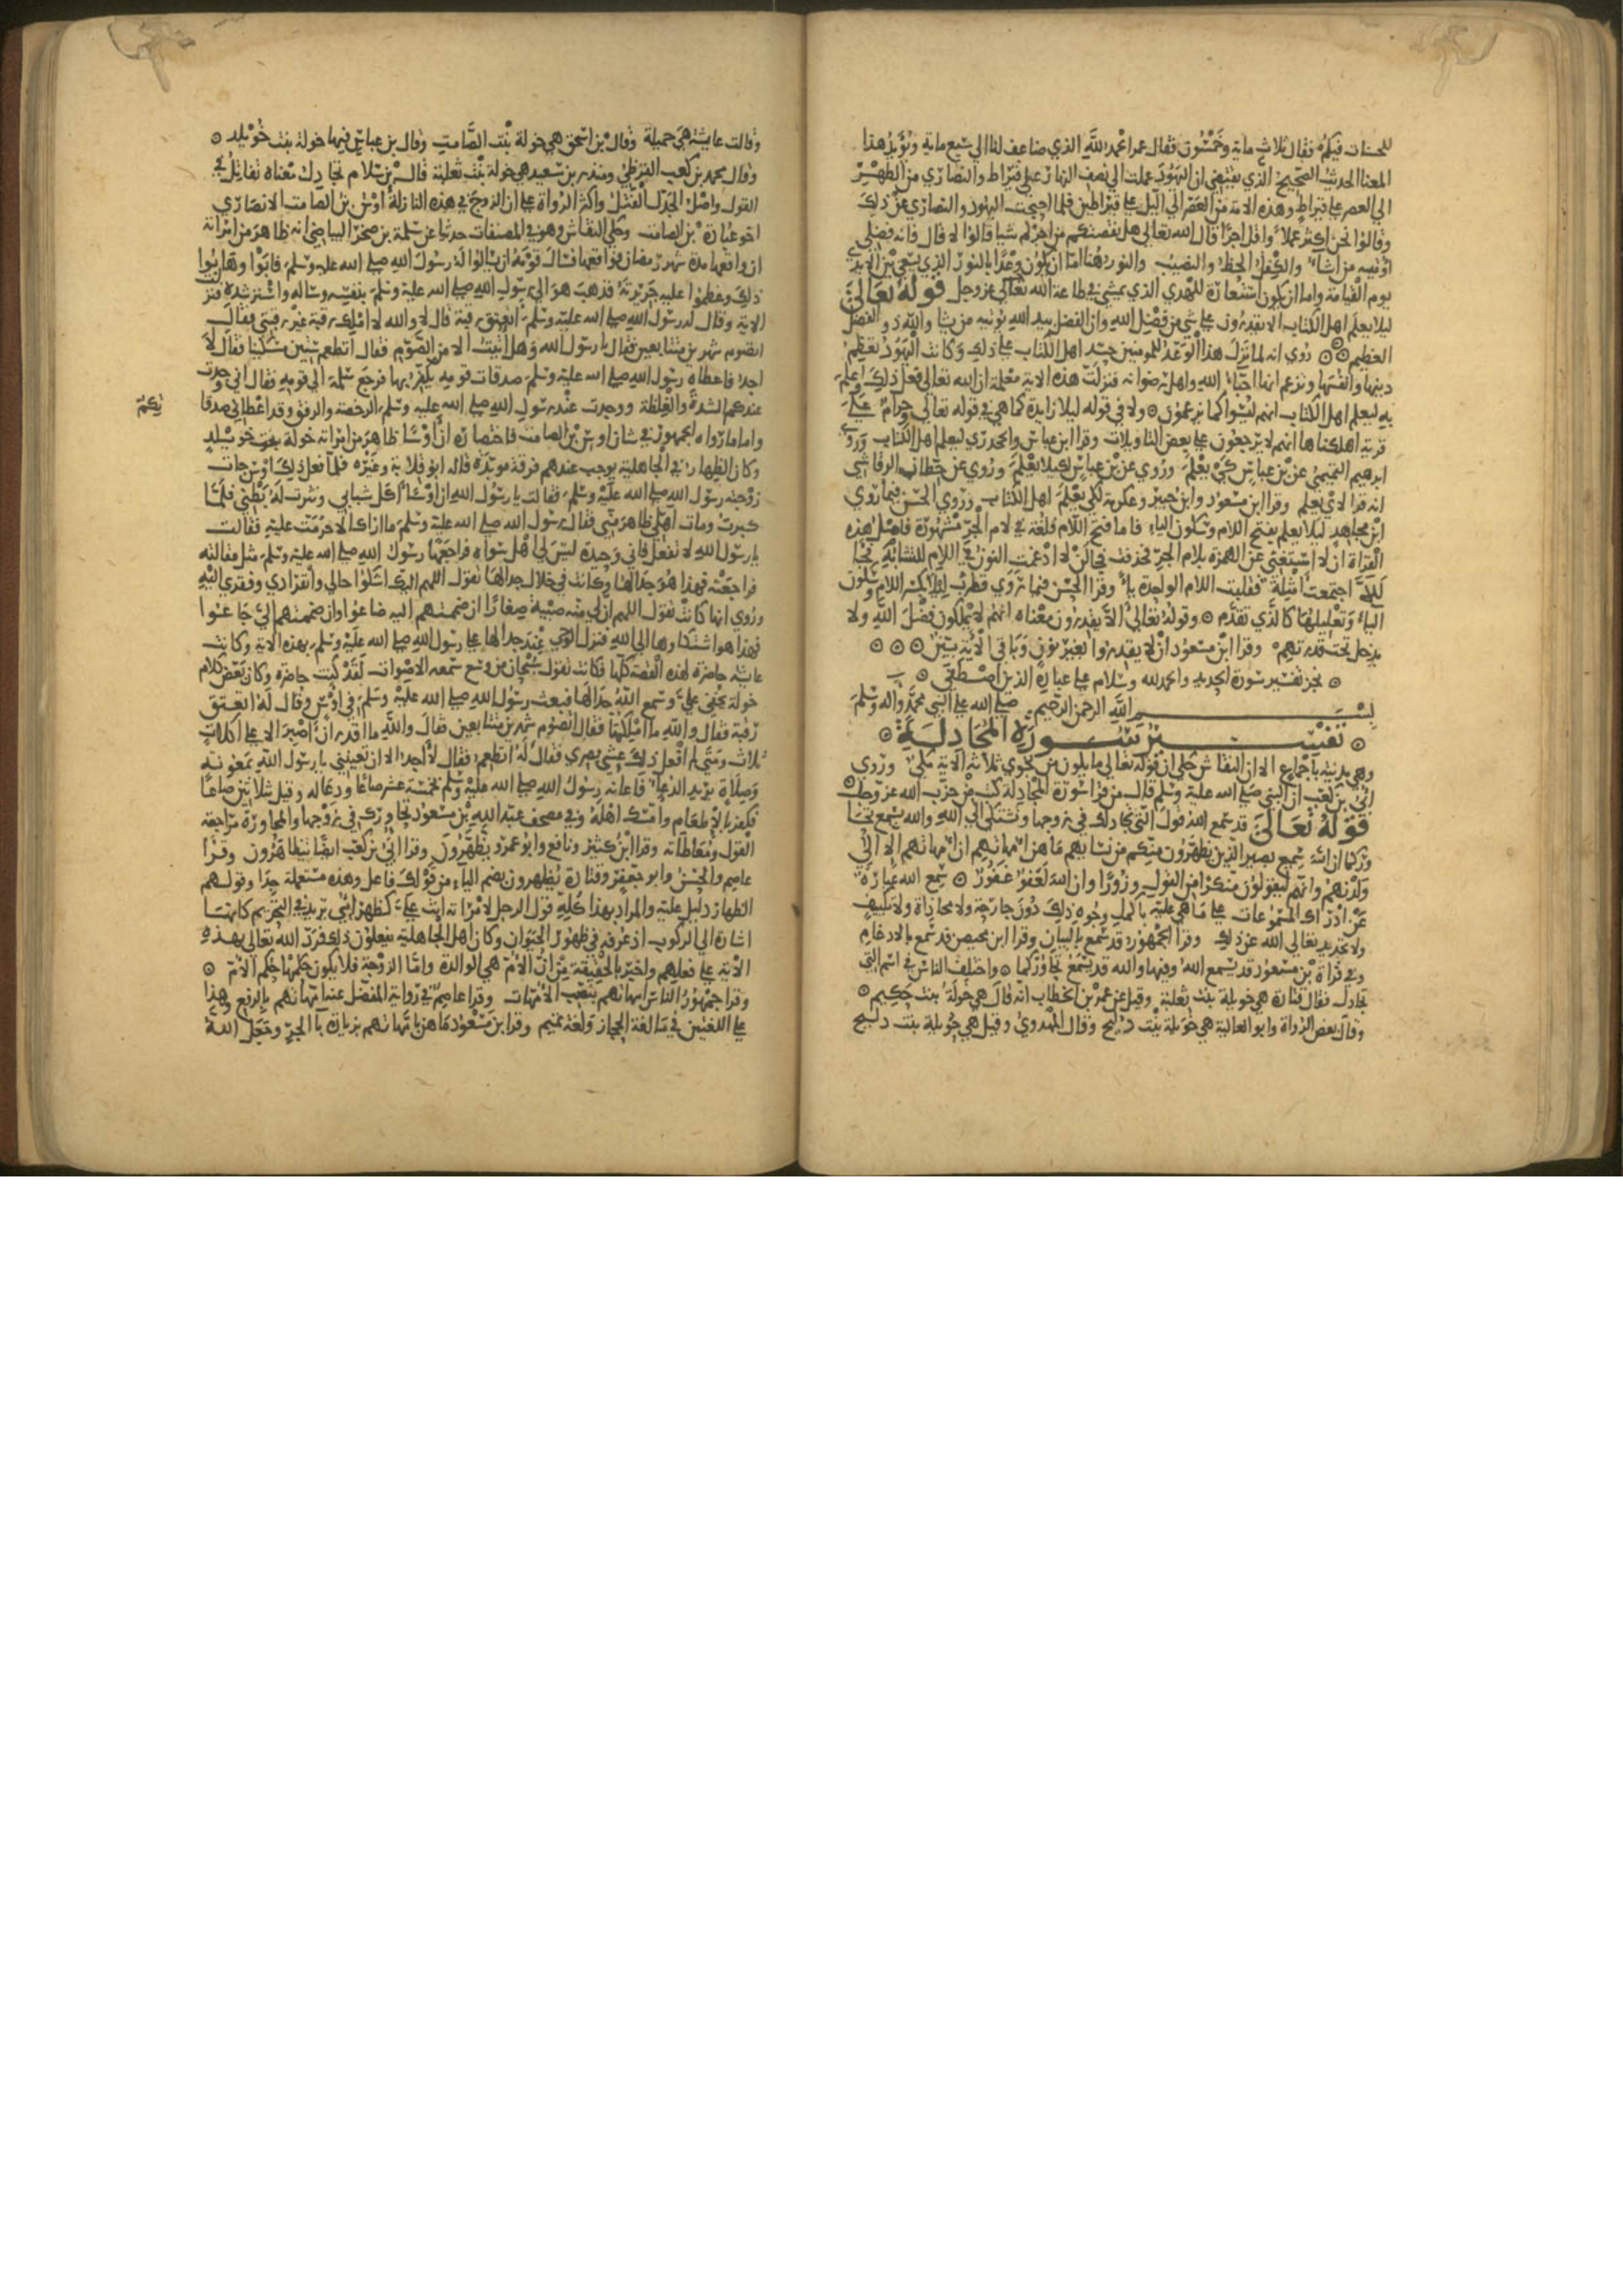 للحسنات فيكم فقال ثلاث ماية وخمسون فقال عمر الحمد لله الذي ضاعف لنا الي سبع ماية ويؤيد هذا
المعنا الحديث الصحيح الذي يقتضي ان اليهود عملت الي نصف النهار علي قيراط والنصاري من الظهر
الي العصر علي قيراط وهذه الامة من العصر الي الليل علي قيراطين فلما احتجت اليهود والنصاري عن ذلك
وقالوا نحن اكثر عملا واقل اجرا قال الله تعالي هل نقصتكم من اجركم شيا قالوا لا قال فانه فضلي
اوتيه من اشاء والكفل الحظ والنصيب والنور هنا اما ان يكون وعدا بالنور الذي يسعي بين الايدي
يوم القيامة واما ان يكون استعارة للهدي الذي يمشي في طاعة الله تعالي عز وجل قوله تعالي
ليلا يعلم اهل الكتاب الا يقدرون علي شي من فضل الله وان الفضل بيد الله يوتيه من يشا والله ذو الفضل
العظيم روي انه لما نزل هذا الوعد للمومنين حسد اهل الكتاب علي ذلك وكانت اليهود تعظم
دينها وانفسها وتزعم انها احباء الله واهل رضوانه فنزلت هذه الاية معلمة ان الله تعالي فعل ذلك واعلم
به ليعلم اهل الكتاب انهم ليسوا كما يزعمون ولا في قوله ليلا زايدة كما هي في قوله تعالي وحرام علي
قرية اهلكناها انهم لا يرجعون علي بعض التاويلات وقرا ابن عباس والجحدري ليعلم اهل الكتاب وروي
ابرهيم التيمي عن بن عباس كي يعلم وروي عن بن عباس لكيلا يعلم وروي عن حطان الرقاشي
انه قرا لان يعلم وقرا ابن مسعود وابن جبير وعكرمة لكي يعلم اهل الكتاب وروي الحسن فيما روي
ابن مجاهد ليلا يعلم بفتح اللام وسكون الياء فاما فتح اللام فلغة في لام الجر مشهورة فاصل هذه
القراة لان لا استغني عن الهمزة بلام الجر فحذفت فجا لن لا ادغمت النون في اللام للتشابه فجا
للّا اجتمعت امثلة فقلبت اللام الواحدة ياء وقرا الحسن فيما روي قطرب ليلا بكسر اللام وسكون
الياء وتعليلها كالذي تقدم وقوله تعالي الا يقدرون معناه انهم لا يملكون فضل الله ولا
يدخل تحت قدرتهم وقرا ابن مسعود ان لا يقدروا بغير نون وباقي الاية بين
نجز تفسير سورة الحديد والحمد لله وسلام علي عباده الذين اصطفي
بسم الله الرحمن الرحيم صلي الله علي النبي محمد واله وسلم
تفسير سورة المجادلة
وهي مدنية باجماع الا ان النقاش حكي ان قوله تعالي ما يكون من نجوي ثلاثة الاية مكي وروي
ابي بن كعب ان النبي صلي الله عليه وسلم قال من قرا سورة المجادلة كتب من حزب الله عز وجل
قوله تعالي قد سمع الله قول التي تجادلك في زوجها وتشتكي الي الله والله يسمع تحا
وركما ان الله سميع بصير الذين يظهرون منكم من نسايهم ما هن امهاتهم ان امهاتهم الا اللائي
ولدنهم وانهم ليقولون منكرا من القول وزورا وان الله لعفو غفور سمع الله عبارة
عن ادراك المسموعات علي ما هي عليه باكمل وجوه ذلك دون جارحة ولا محاذاة ولا تكييف
ولا تحديد تعالي الله عن ذلك وقرا الجمهور قد سمع بالبيان وقرا ابن محيصن قد سمع بالادغام
وفي قراة بن مسعود قد يسمع الله وفيها والله قد يسمع تحاوركما واختلف الناس في اسم التي
تجادل فقال قتادة هي خويلة بنت ثعلبة وقيل عن عمر بن الخطاب انه قال هي خولة بنت حكيم
وقال بعض الرواة وابو العالية هي خويلة بنت دليج وقال المهدوي وقيل هي خويلة بنت دليج
وقالت عايشة هي جميلة وقال بن اسحق هي خولة بنت الصامت وقال بن عباس فيها خولة بنت خويلد
وقال محمد بن كعب القرظي ومنذر بن سعيد هي خولة بنت ثعلبة قال بن سلام تجادلك معناه تقاتلك في
القول واصل الجدل الفتل واكثر الرواة علي ان الزوج في هذه النازلة اوس بن الصامت الانصاري
اخو عبادة بن الصامت وحكي النقاش وهو في المصنفات حديثا عن سلمة بن صخر البياضي انه ظاهر من امراته
ان واقعها مدة شهر رمضان فواقعها فسال قومه ان يسالوا له رسول الله صلي الله عليه وسلم فابوا وهابوا
ذلك وعظموا عليه جريرته فذهب هو الي رسول الله صلي الله عليه وسلم بنفسه وساله واسترشده فنزلت
الاية وقال له رسول الله صلي الله عليه وسلم اتعتق رقبة قال لا والله لا املك رقبة غير رقبتي فقال
اتصوم شهرين متتابعين فقال يا رسول الله وهل اتيت الا من الصوم فقال اتطعم ستين مسكينا فقال لا
اجد فاعطاه رسول الله صلي الله عليه وسلم صدقات قومه يكفر بها فرجع سلمة الي قومه فقال اني وجدت
عندكم الشدة والغلظة ووجدت عند رسول الله صلي الله عليه وسلم الرخصة والرفق وقد اعطاني صدقا
تكم
واما ما رواه الجمهور في شان اوس بن الصامت فاختصاره ان اوسا ظاهر من امراته خولة بنت خويلد
وكان الظهار في الجاهلية يوجب عندهم فرقة موبدة قاله ابو قلابة وغيره فلما فعل ذلك اوس جات
زوجته رسول الله صلي الله عليه وسلم فقالت يا رسول الله ان اوسا اكل شبابي ونثرت له بطني فلما
كبرت ومات اهلي ظاهر مني فقال رسول الله صلي الله عليه وسلم ما اراك الا حرمت عليه فقالت
يا رسول الله لا تفعل فاني وحيدة ليس لي اهل سواه فراجعها رسول الله صلي الله عليه وسلم مثل مقالته
فراجعته فهذا هو جدالها وكانت في خلال جدالها تقول اللهم اليك اشكوا حالي وانفرادي وفقري اليه
وروي انها كانت تقول اللهم ان لي منه صبية صغارا ان ضممتهم اليه ضاعوا وان ضممتهم الي جاعوا
فهذا هو اشتكاوها الي الله فنزل الوحي عند جدالها علي رسول الله صلي الله عليه وسلم بهذه الاية وكانت
عايشة حاضرة لهذه القصة كلها فكانت تقول سبحان من وسع سمعه الاصوات لقد كنت حاضرة وكان بعض كلام
خولة يخفي علي وسمع الله جدالها فبعث رسول الله صلي الله عليه وسلم في اوس وقال له اتعتق
رقبة فقال والله ما املكها فقال اتصوم شهرين متتابعين فقال والله ما اقدر ان اصبر الا علي اكلات
ثلاث ومتي لم افعل ذلك عشي بصري فقال له اتطعم فقال لا اجد الا ان تعينني يا رسول الله بمعونة
وصلاة يريد الدعاء فاعانه رسول الله صلي الله عليه وسلم بخمسة عشر صاعا ودعا له وقيل ثلاثين صاعا
فكفر بالاطعام وامسك اهله وفي مصحف عبد الله بن مسعود تحاورك في زوجها والمحاورة مراجعة
القول ومعاطاته وقرا ابن كثير ونافع وابو عمرو يظهرون وقرا ابي بن كعب ايضا يتظاهرون وقرا
عاصم والحسن وابو جعفر وقتادة يظهرون بضم الياء من قولك فاعل وهذه مستعملة جدا وقولهم
الظهار دليل عليه والمراد بهذا كله قول الرجل لامراته انت علي كظهر امي يريد في التحريم كانها
اشارة الي الركوب اذ عرفه في ظهور الحيوان وكان اهل الجاهلية يفعلون ذلك فرد الله تعالي بهذه
الاية علي فعلهم واخبر بالحقيقة من ان الام هي الوالدة واما الزوجة فلا يكون حكمها حكم الام
وقرا جمهور الناس امهاتهم بنصب الامهات وقرا عاصم في رواية المفضل عنه امهاتهم بالرفع وهذا
علي اللغتين في ما لغة الحجاز ولغة تميم وقرا بن مسعود ما هن بامهاتهم بزيادة با الجر وجعل الله